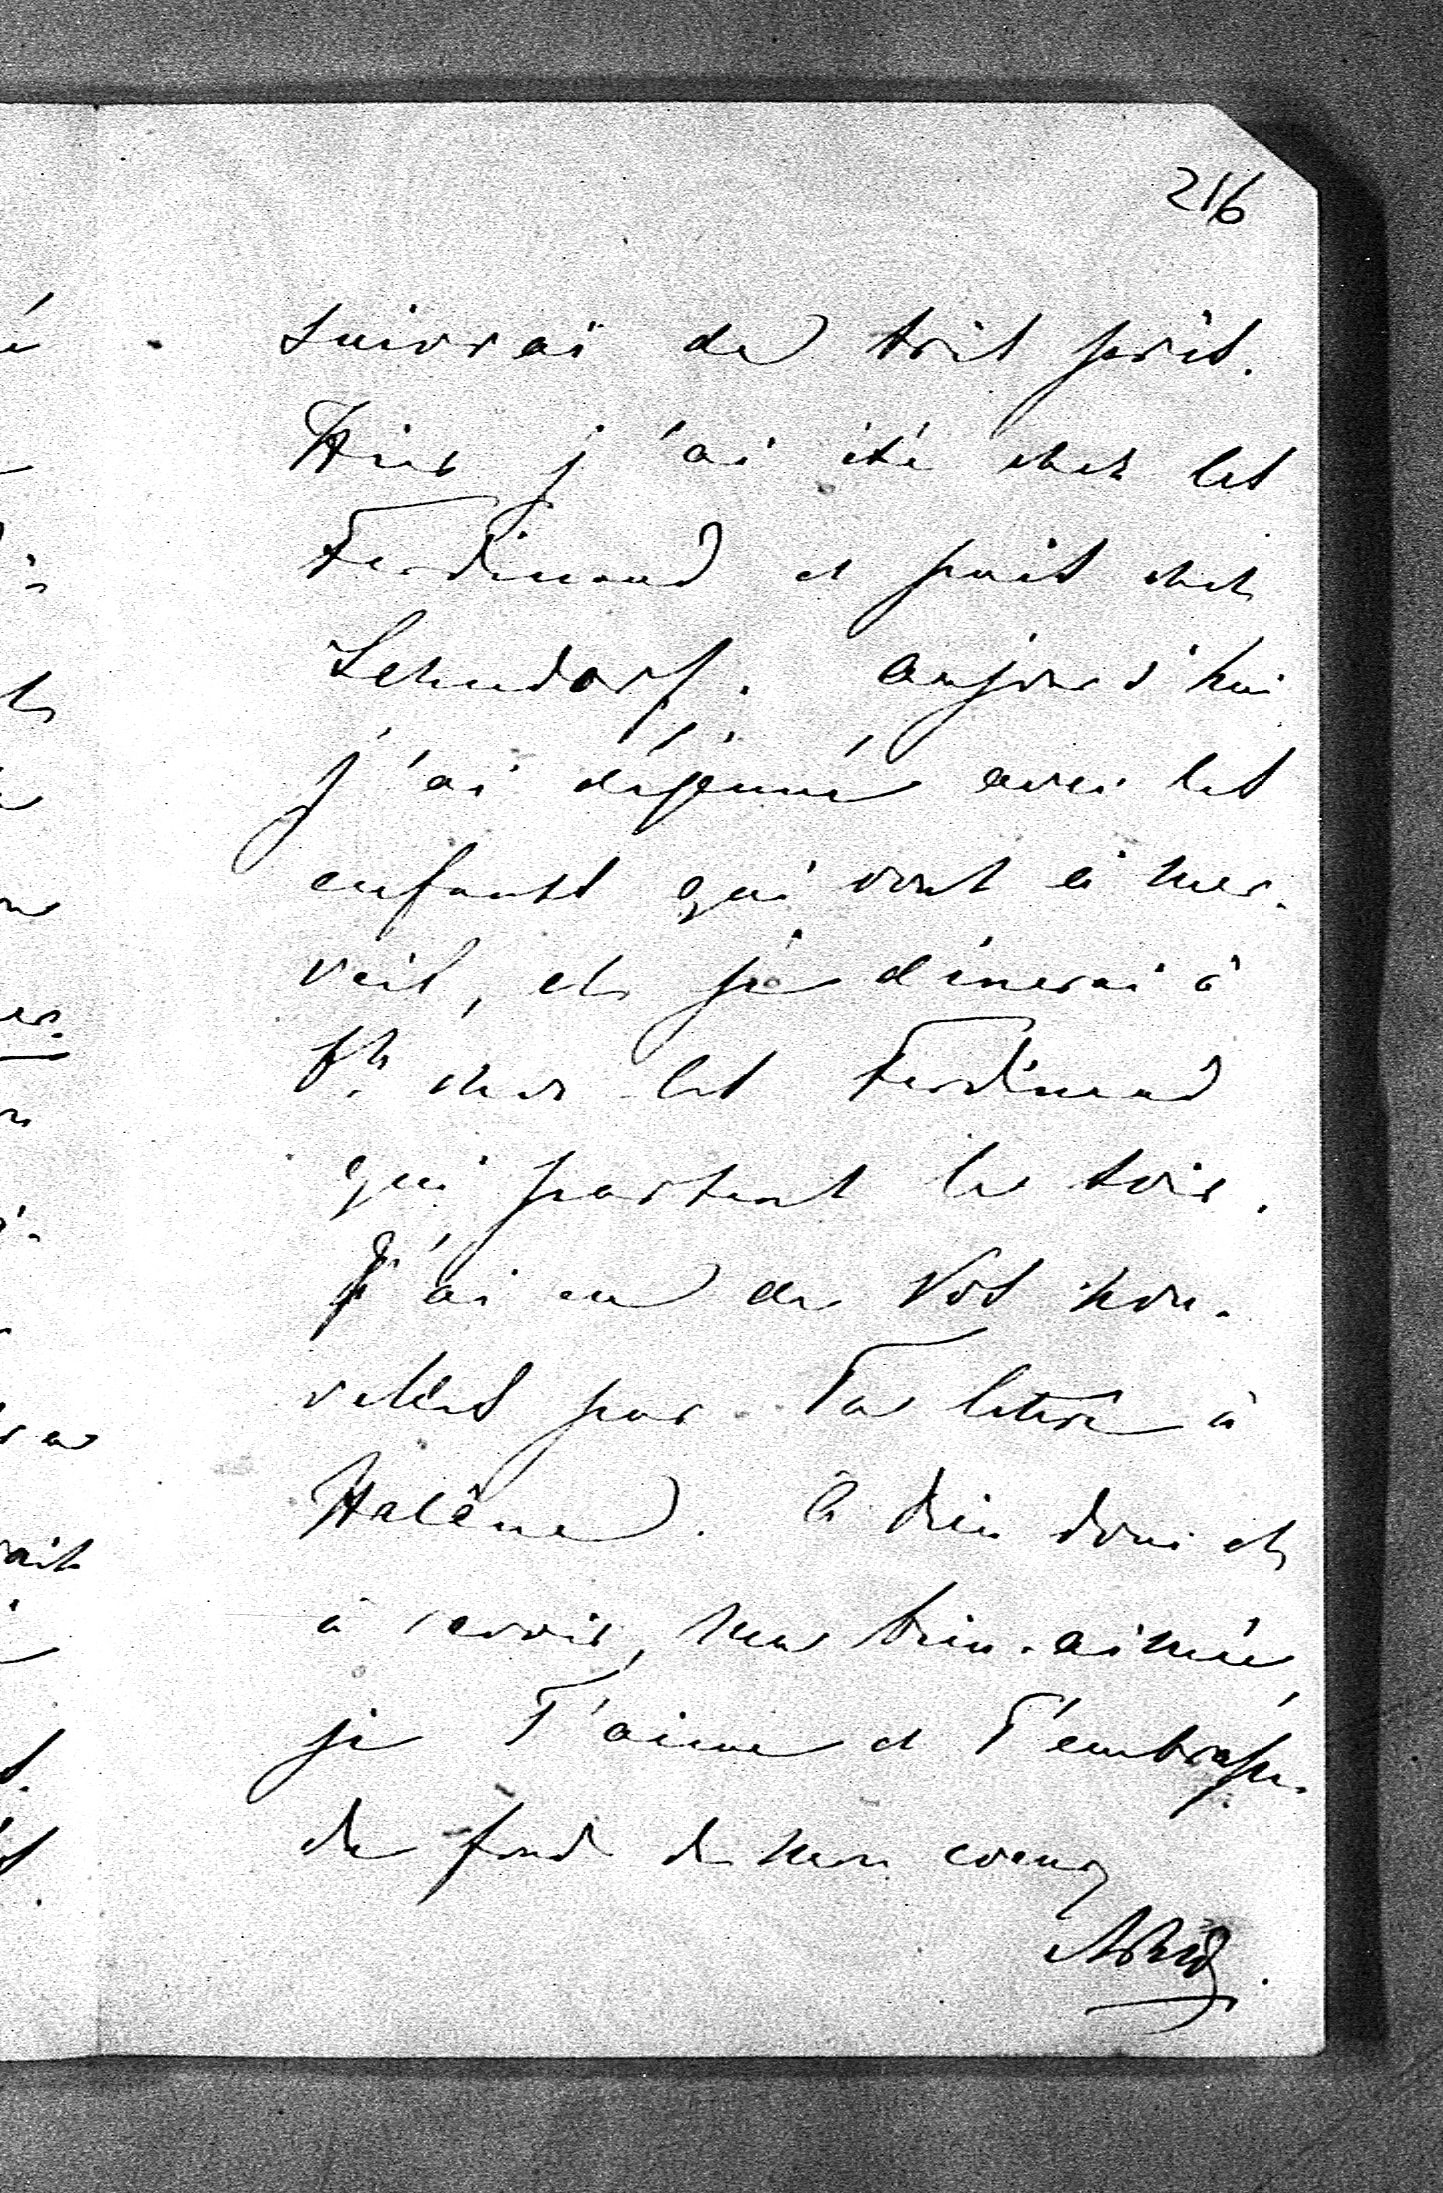 216
suivrai de très près.
Hier j'ai été chez les
Ferdinand et puis chez
Lehndorf. Aujourd'hui
j'ai déjeuné avec les
enfants qui vont à mer-
veil, et je dinerai à
chez les Ferdinand
qui partent le soir.
J'ai eu de Vos nou-
velles par Ta lettre à
Halène. A Dieu donc et
à revoir, ma bien-aimée,
je T'aime et T'embrasse
du fond de mon coeur